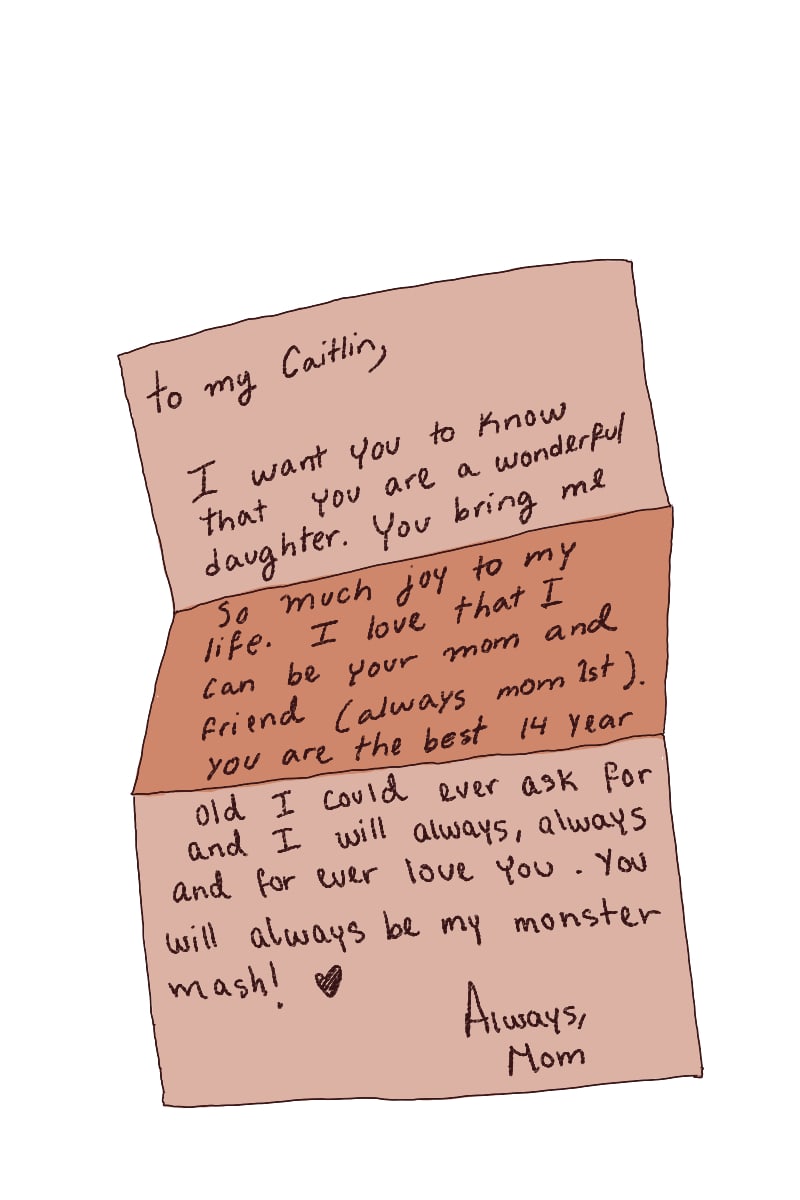 to my Caitlin,
I want you to know
that you are a wonderful
daughter. You bring me
so much joy to my
life. I love that I
can be your mom and
friend (always mom 1st).
you are the best 14 year
old I could ever ask for
and I will always, always
and for ever love you. You
will always be my monster
mash! ♥
Always,
Mom